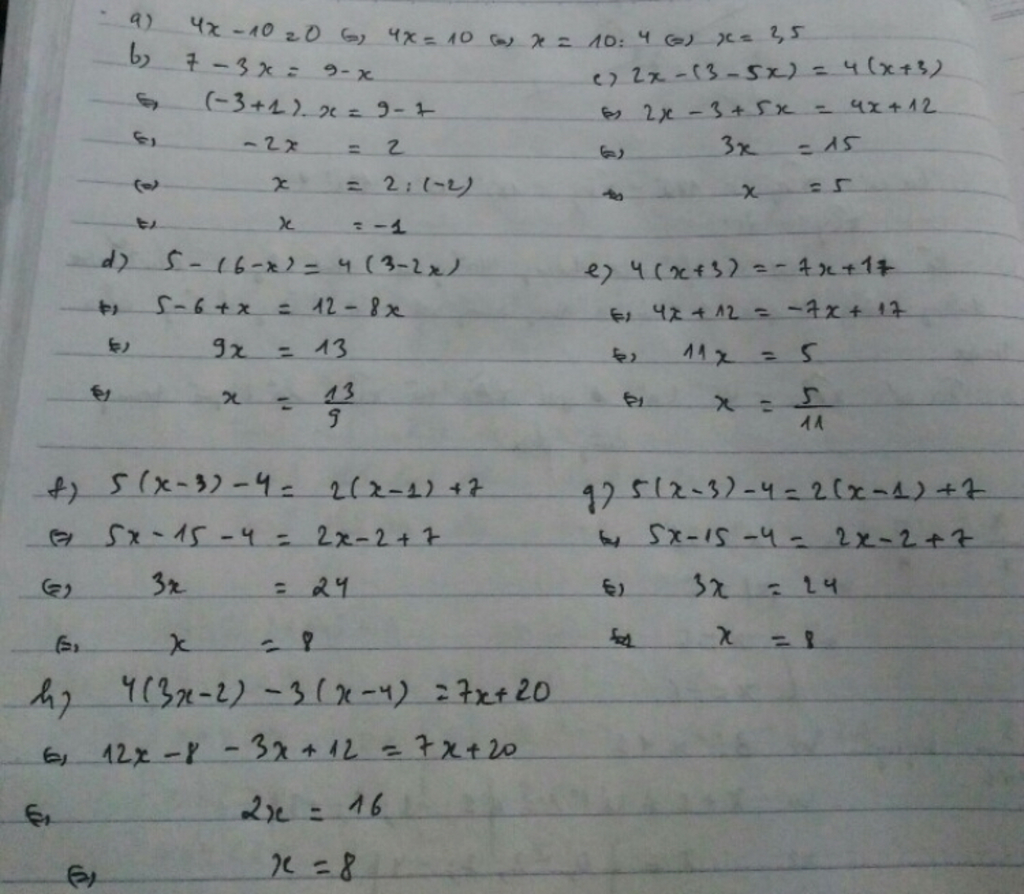 a) 4x - 10 = 0 ⇔ 4x = 10 ⇔ x = 10 : 4 ⇔ x = 2,5
b) 7 - 3x = 9 - x
⇔ (-3+1). x = 9 - 7
⇔ -2x = 2
⇔ x = 2 : (-2)
⇔ x = -1
c) 2x - (3 - 5x) = 4(x+3)
⇔ 2x - 3 + 5x = 4x + 12
⇔ 3x = 15
⇔ x = 5
d) 5 - (6 - x) = 4(3 - 2x)
⇔ 5 - 6 + x = 12 - 8x
⇔ 9x = 13
⇔ x = 13/9
e) 4(x+3) = -7x + 17
⇔ 4x + 12 = -7x + 17
⇔ 11x = 5
⇔ x = 5/11
f) 5(x-3) - 4 = 2(x-1) + 7
⇔ 5x - 15 - 4 = 2x - 2 + 7
⇔ 3x = 24
⇔ x = 8
g) 5(x-3) - 4 = 2(x-1) + 7
⇔ 5x - 15 - 4 = 2x - 2 + 7
⇔ 3x = 24
⇔ x = 8
h) 4(3x-2) - 3(x-4) = 7x + 20
⇔ 12x - 8 - 3x + 12 = 7x + 20
⇔ 2x = 16
⇔ x = 8